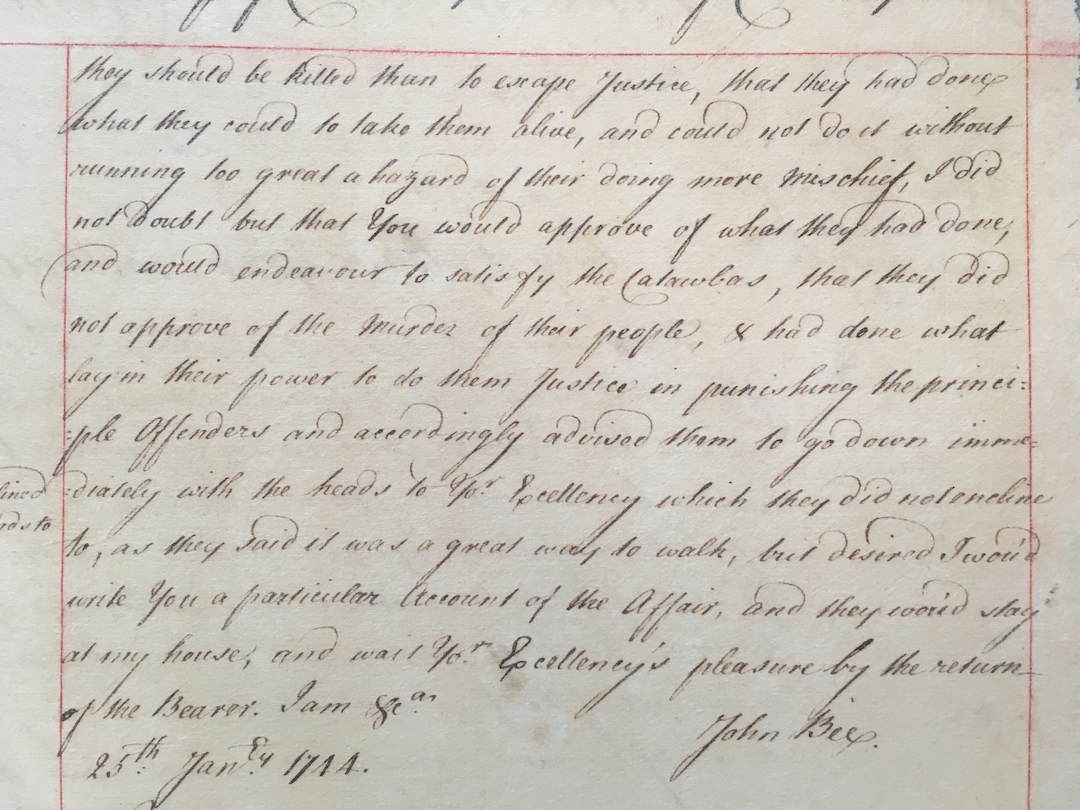 they should be killed than to escape Justice, that they had done
what they could to take them alive, and could not do it without
running too great a hazard of their doing more Mischief, I did
not doubt but that You would approve of what they had done,
and would endeavour to satisfy the Catawbas, that they did
not approve of the Murder of their people, & had done what
lay in their power to do them Justice in punishing the princi=
=ple Offenders and accordingly advised them to go down imme=
=diately with the heads to Yor. Excellency which they did not encline
to, as they said it was a great way to walk, but desired I wou'd
write You a particular Account of the Affair, and they wou'd stay
at my house, and wait Yor. Excellency's pleasure by the return
of the Bearer. I am &ca.
John Bee.
25th. Janry 1744.